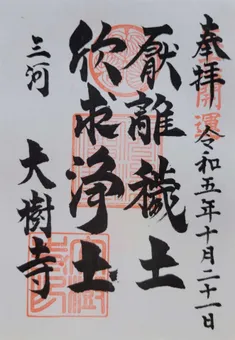 奉拝
開運
令和五年十月二十一日
厭離穢土
欣求浄土
三河
大樹寺